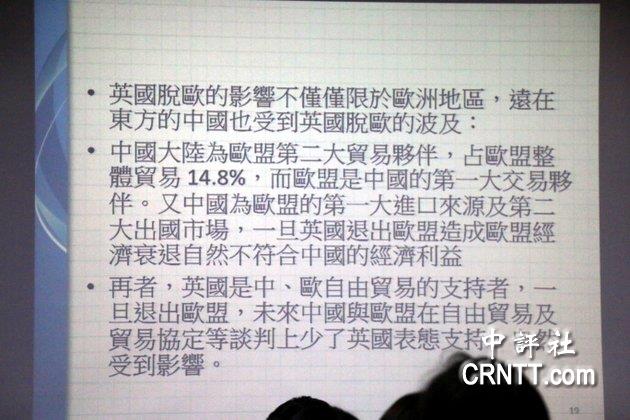 • 英國脫歐的影響不僅僅限於歐洲地區，遠在
東方的中國也受到英國脫歐的波及：
• 中國大陸為歐盟第二大貿易夥伴，占歐盟整
體貿易 14.8%，而歐盟是中國的第一大交易夥
伴。又中國為歐盟的第一大進口來源及第二
大出國市場，一旦英國退出歐盟造成歐盟經
濟衰退自然不符合中國的經濟利益
• 再者，英國是中、歐自由貿易的支持者，一
旦退出歐盟，未來中國與歐盟在自由貿易及
貿易協定等談判上少了英國表態支持
受到影響。
中評社
CRNTT.com
19